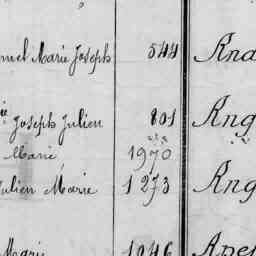 nuel Marie Joseph 544 And
ie Joseph Julien 801 Ang
Marie 1970
Julien Marie 1273 Ang
Marie 1046 Apes